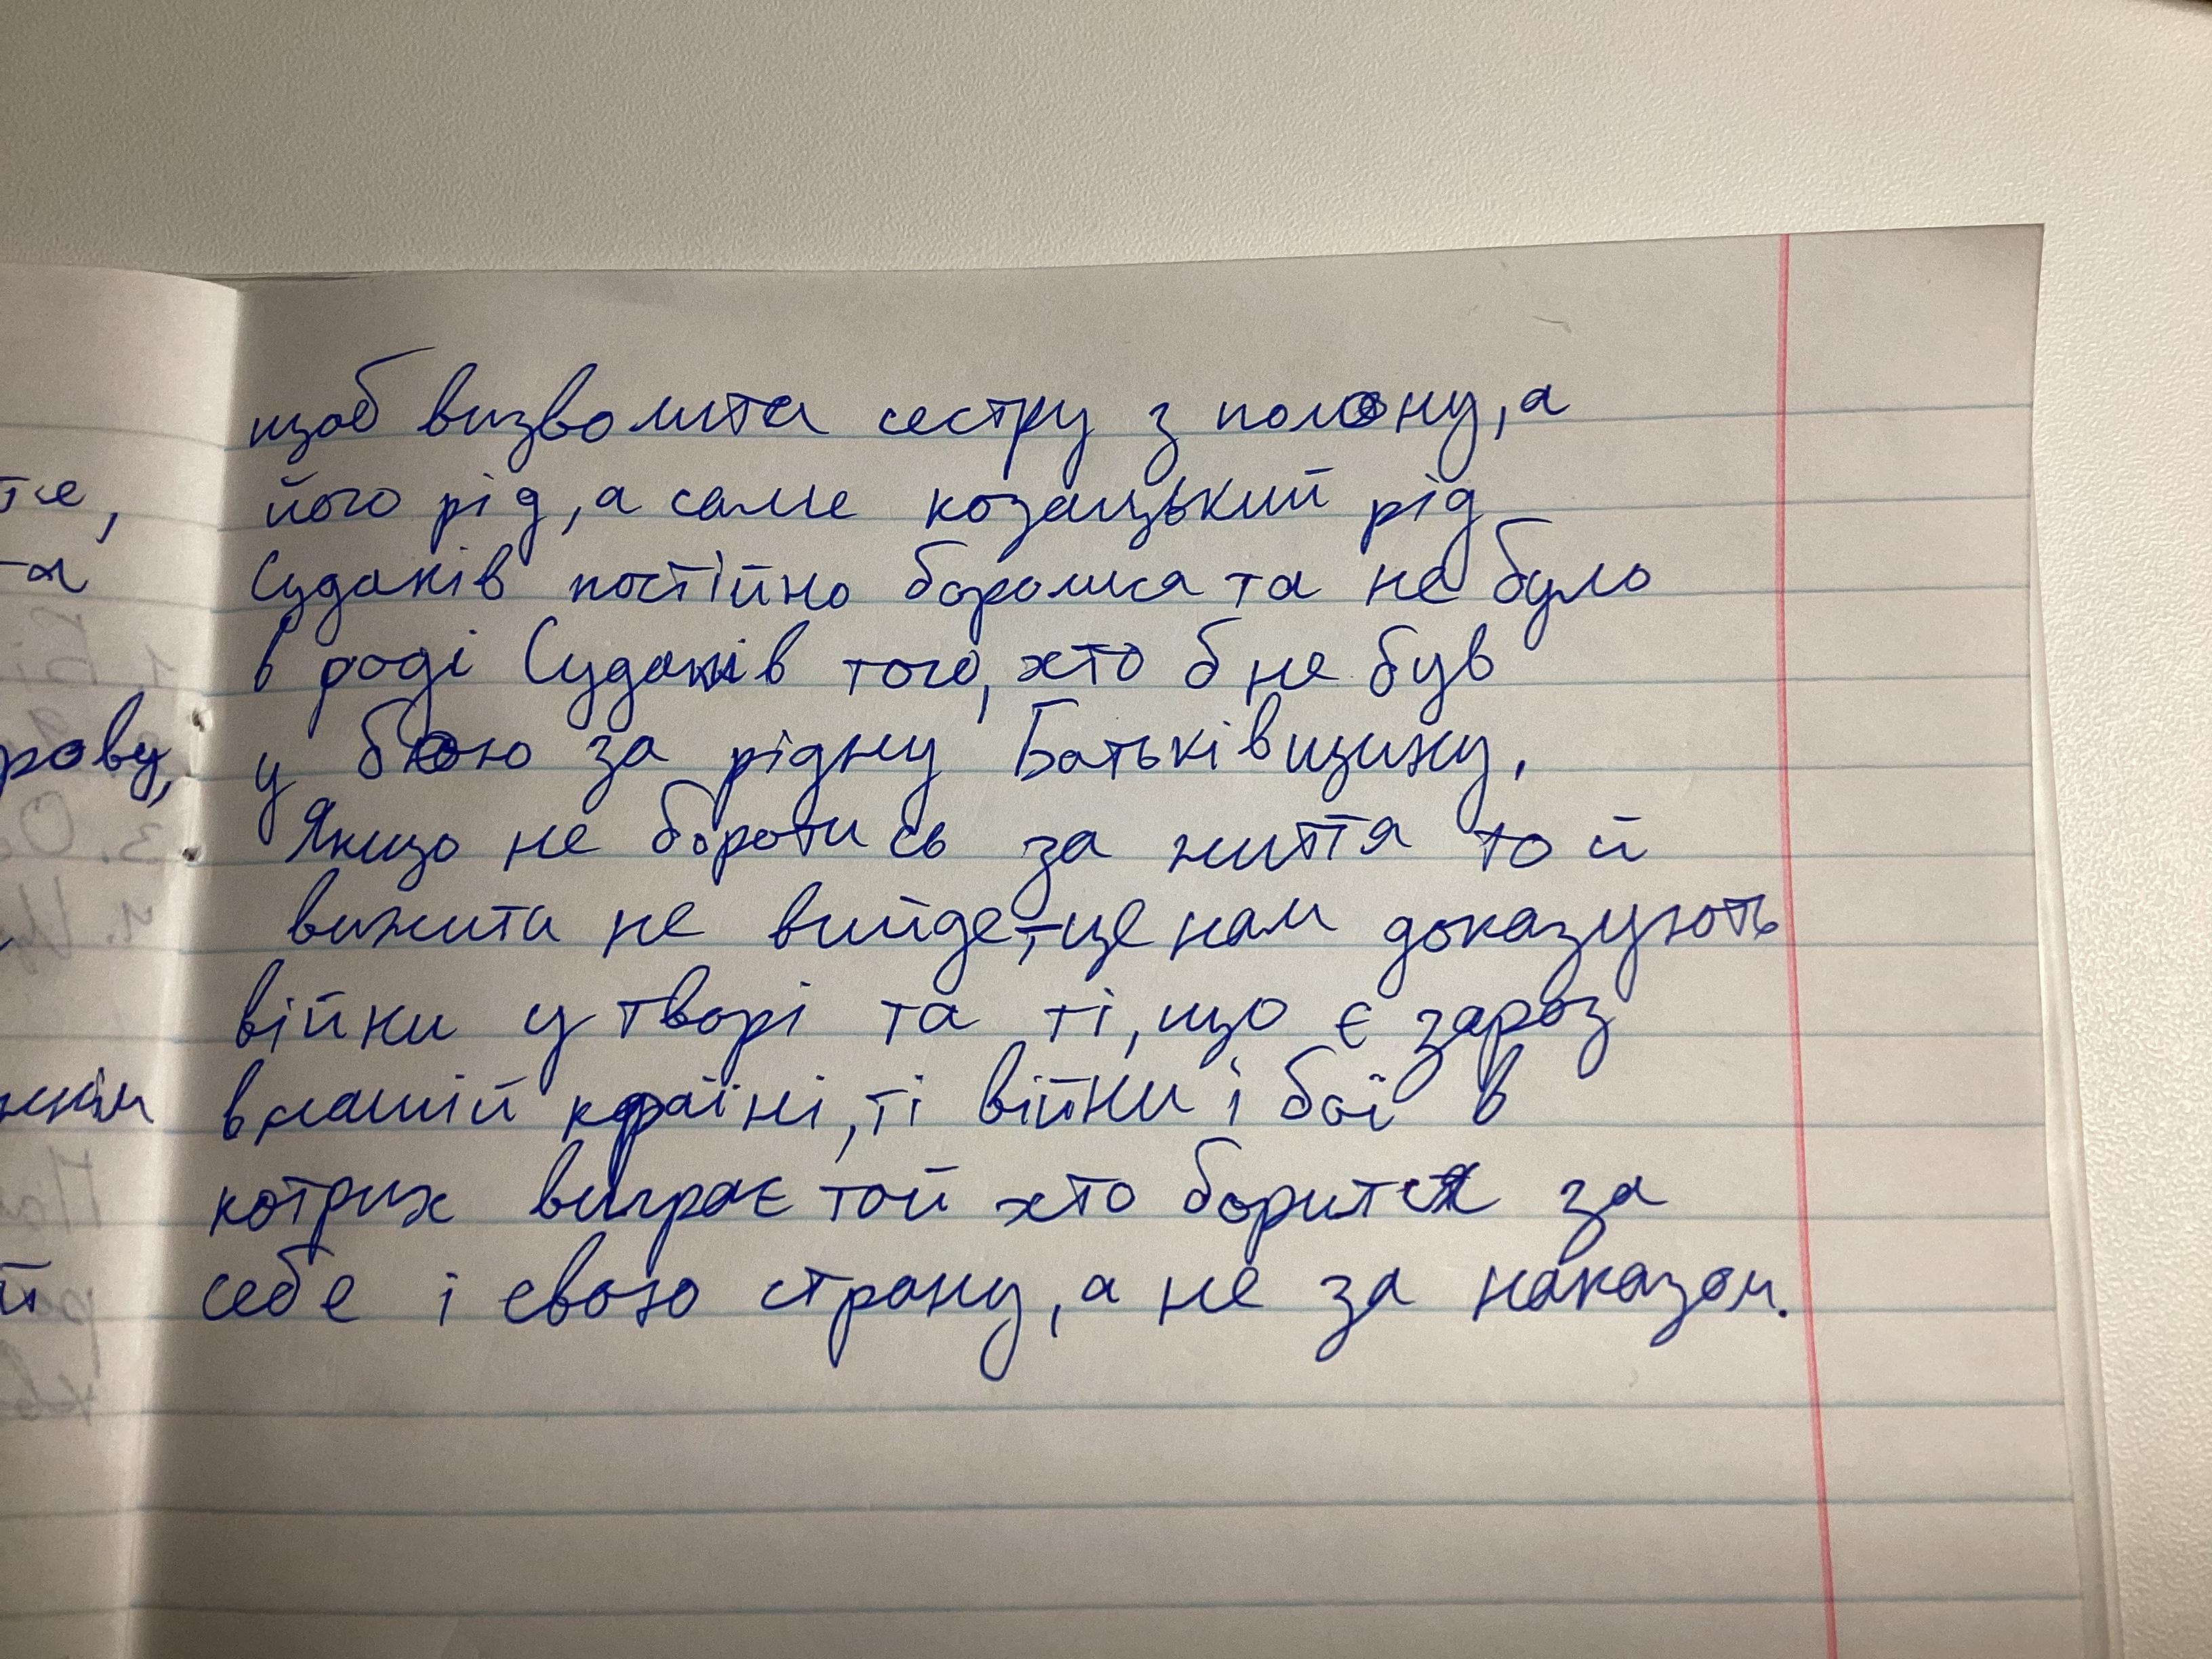 щоб визволити сестру з полону, а
його рід, а саме козацький рід
Судаків постійно боролися та не було
в роді Судаків того, хто б не був
у бою за рідну Батьківщину.
Якщо не боротись за життя то й
вижити не вийде, - це нам доказують
війни у творі та ті, що є зараз
в нашій країні, ті війни і бої в
котрих виграє той хто борится за
себе і свою страну, а не за наказом.
рову,